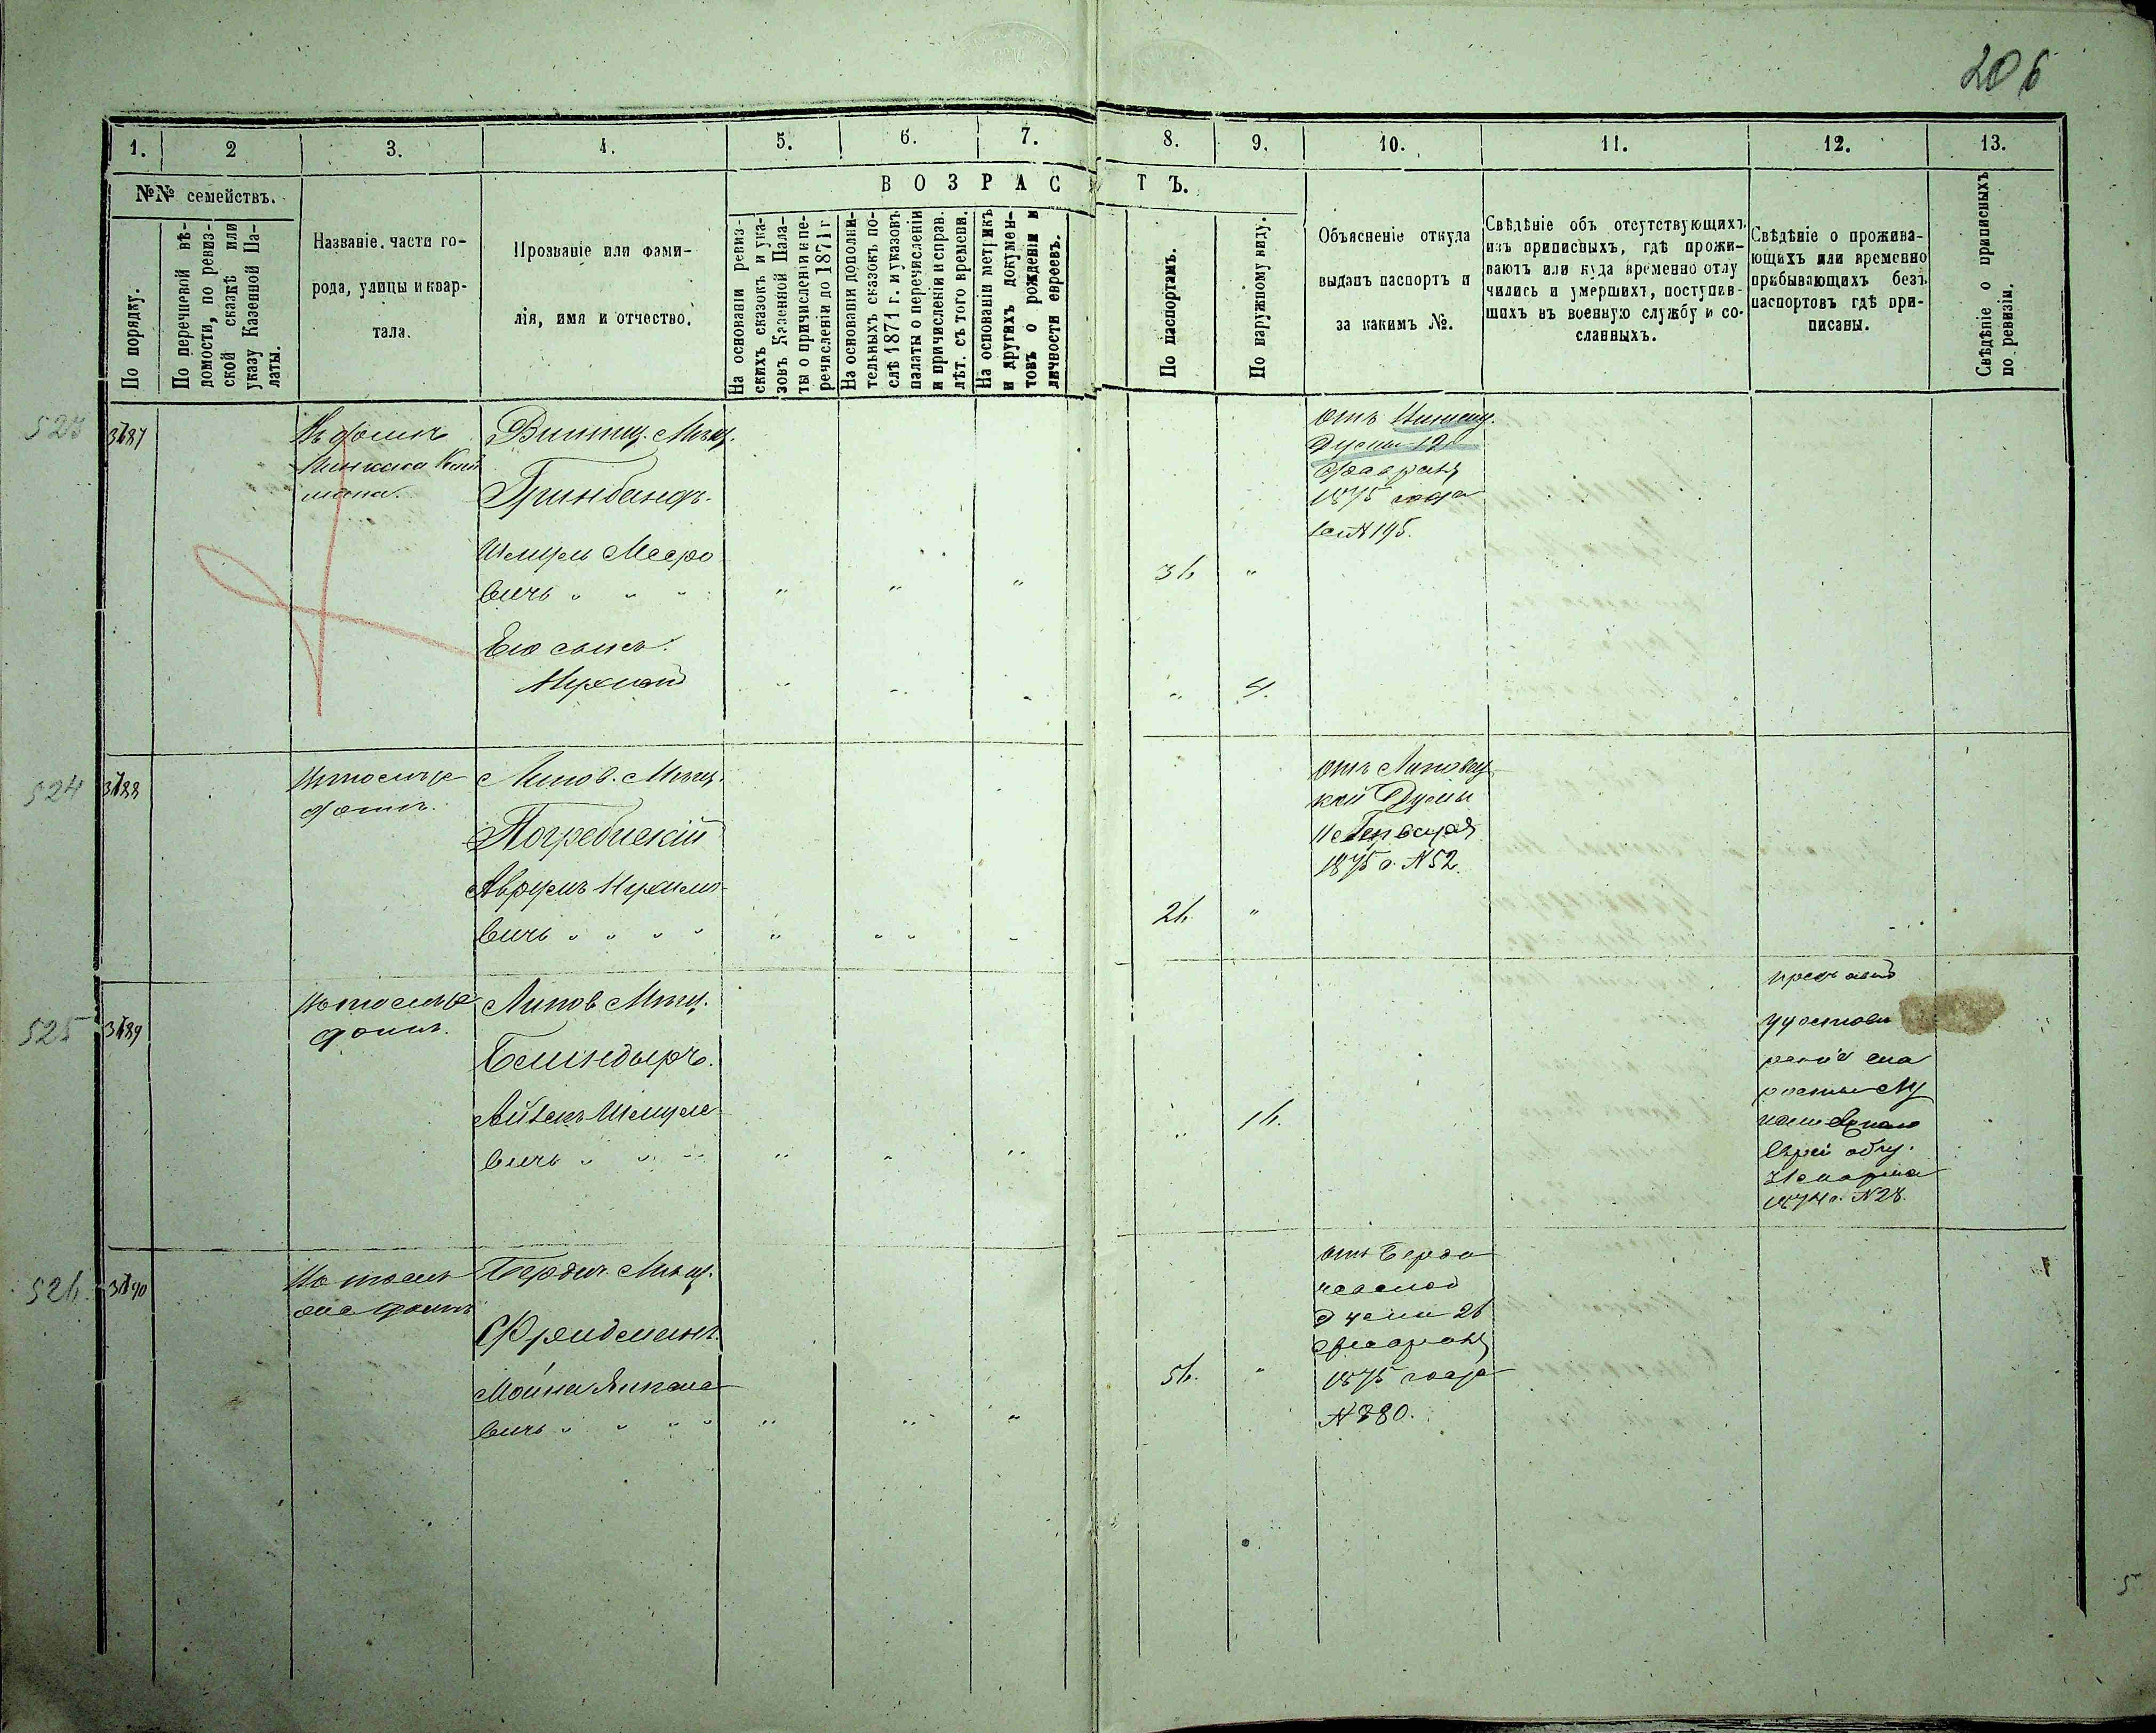 206
1. 2 3. 4. 5. 6. 7. 8. 9. 10. 11. 12. 13.
№№ семействъ.
В О З Р А С Т Ъ.
По порядку.
По перечневой вѣ-
домости, по ревиз-
ской сказкѣ или
указу Казенной Па-
латы.
Названіе части го-
рода, улицы и квар-
тала.
Прозваніе или фами-
лія, имя и отчество.
На основаніи ревиз-
скихъ сказокъ и ука-
зовъ Казенной Пала-
ты о причисленіи и пе-
речисленіи до 1871 г
На основаніи дополни-
тельныхъ сказокъ по-
слѣ 1871 г. и указовъ
палаты о перечисленіи
и причисленіи и справ.
лѣт. съ того времени.
На основаніи метрикъ
и другихъ докумен-
товъ о рожденіи и
личности евреевъ.
По паспортамъ.
По наружному виду.
Объясненіе откуда
выданъ паспортъ и
за какимъ №.
Свѣдѣніе объ отсутствующихъ
изъ приписныхъ, гдѣ прожи-
ваютъ или куда временно отлу
чились и умершихъ, поступив-
шихъ въ военную службу и со-
сланныхъ.
Свѣдѣніе о прожива-
ющихъ или временно
прибывающихъ безъ
паспортовъ гдѣ при-
писаны.
Свѣдѣніе о приписныхъ
по ревизіи.
523
3187
Въ домѣ
Винниц. Мѣщ.
Гринбандъ.
Шмуль Мееро
вичъ " " "
36 "
Его сынъ.
Нухимъ
" 4.
отъ
Думы 12
февраля
1875 года
за № 195.
524
3188
Въ томъ же
домѣ.
Липов. Мѣщ.
Погребискій
Аврумъ Нухимо
вичъ " " " "
26. "
отъ Липовец
кой Думы
Генваря
1875 г. № 52.
525
3189
Въ томъ же
домѣ.
Липов Мѣщ.
Блиндыръ.
Айзекъ Шмуле
вичъ " " "
" 16.
удостовѣ
реніе ста
росты
Еврей общ.
марта
1874 г. № 28.
526.
3190
Въ томъ
же домѣ
Бердич. Мѣщ.
Фридманъ.
Мошка
вичъ " " " "
56. "
отъ Берди
чевской
Думы 26
февраля
1875 года
№ 780.
5